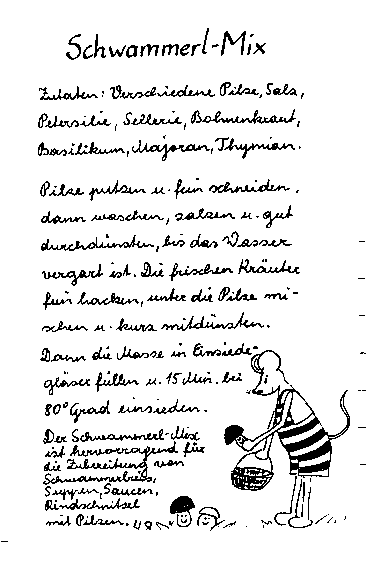 Schwammerl-Mix
Zutaten: Verschiedene Pilze, Salz,
Petersilie, Sellerie, Bohnenkraut,
Basilikum, Majoran, Thymian.
Pilze putzen u. fein schneiden,
dann waschen, salzen u. gut
durchdünsten, bis das Wasser
vergart ist. Die frischen Kräuter
fein hacken, unter die Pilze mi-
schen u. kurz mitdünsten.
Dann die Masse in Einsiede-
gläser füllen u. 15 Min. bei
80° Grad einsieden.
Der Schwammerl-Mix
ist hervorragend für
die Zubereitung von
Schwammerlreis,
Suppen, Saucen,
Rindschnitzel
mit Pilzen.